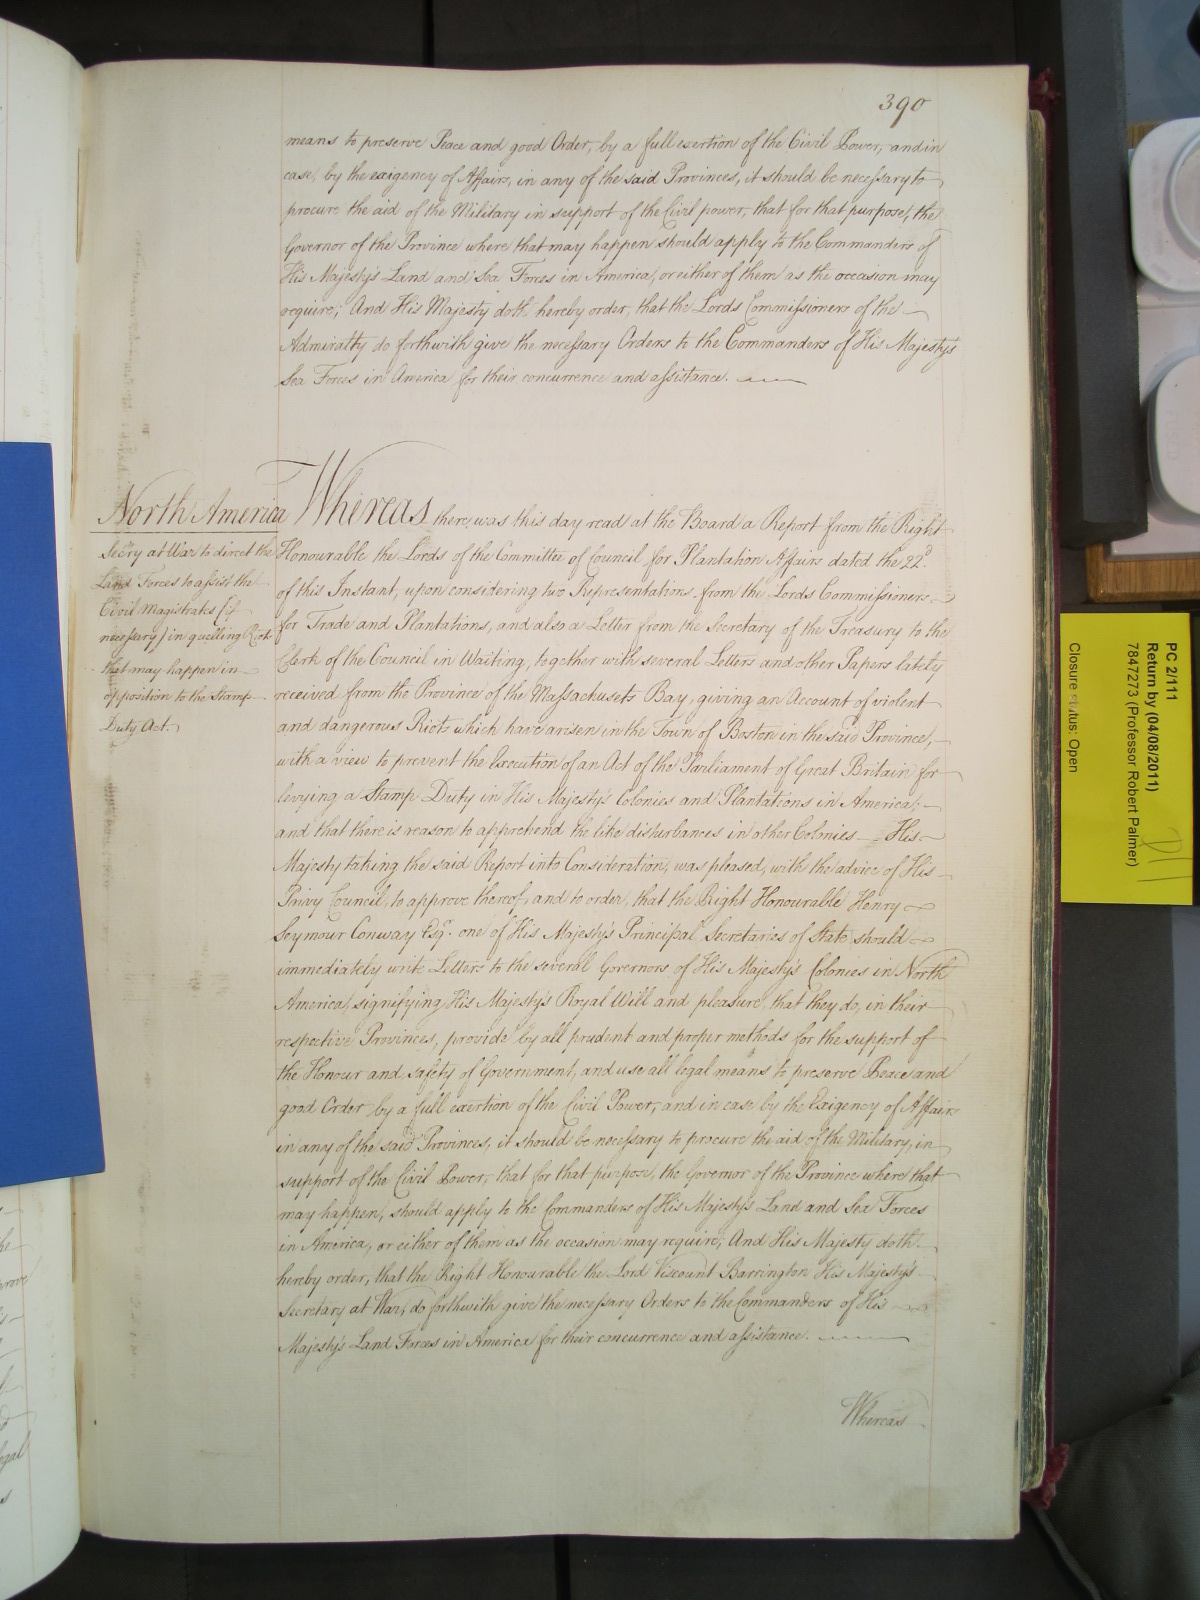 390
means to preserve Peace and good Order, by a full exertion of the Civil Power, and in
case, by the exigency of Affairs, in any of the said Provinces, it should be necessary to
procure the aid of the Military in support of the Civil power, that for that purpose, the
Governor of the Province where that may happen should apply to the Commanders of
His Majesty's Land and Sea Forces in America, or either of them as the occasion may
require; And His Majesty doth hereby order, that the Lords Commissioners of the
Admiralty do forthwith give the necessary Orders to the Commanders of His Majesty's
Sea Forces in America for their concurrence and assistance.
North America
Secry at War to direct the
Land Forces to assist the
Civil Magistrates (if
necessary) in quelling Riots
that may happen in
opposition to the Stamp
Duty Act.
Whereas there was this day read at the Board a Report from the Right
Honourable the Lords of the Committee of Council for Plantation Affairs dated the 22d.
of this Instant, upon considering two Representations from the Lords Commissioners
for Trade and Plantations, and also a Letter from the Secretary of the Treasury to the
Clerk of the Council in Waiting, together with several Letters and other Papers lately
received from the Province of the Massachusets Bay, giving an Account of violent
and dangerous Riots which have arisen in the Town of Boston in the said Province,
with a view to prevent the Execution of an Act of the Parliament of Great Britain for
levying a Stamp Duty in His Majesty's Colonies and Plantations in America;
and that there is reason to apprehend the like disturbances in other Colonies His
Majesty taking the said Report into Consideration, was pleased, with the advice of His
Privy Council, to approve thereof, and to order, that the Right Honourable Henry
Seymour Conway Esqr. one of His Majesty's Principal Secretaries of State, should
immediately write Letters to the several Governors of His Majesty's Colonies in North
America, signifying His Majesty's Royal Will and pleasure, that they do, in their
respective Provinces, provide by all prudent and proper methods for the support of
the Honour and safety of Government, and use all legal means to preserve Peace and
good Order by a full exertion of the Civil Power, and in case by the Exigency of Affairs
in any of the said Provinces, it should be necessary to procure the aid of the Military, in
support of the Civil Power, that for that purpose, the Governor of the Province where that
may happen, should apply to the Commanders of His Majesty's Land and Sea Forces
in America, or either of them as the occasion may require; And His Majesty doth
hereby order, that the Right Honourable the Lord Viscount Barrington His Majesty's
Secretary at War, do forthwith give the necessary Orders to the Commanders of His
Majesty's Land Forces in America for their concurrence and assistance.
Whereas
PC 2/111
Return by (04/08/2011)
7847273 (Professor Robert Palmer)
Closure status: Open